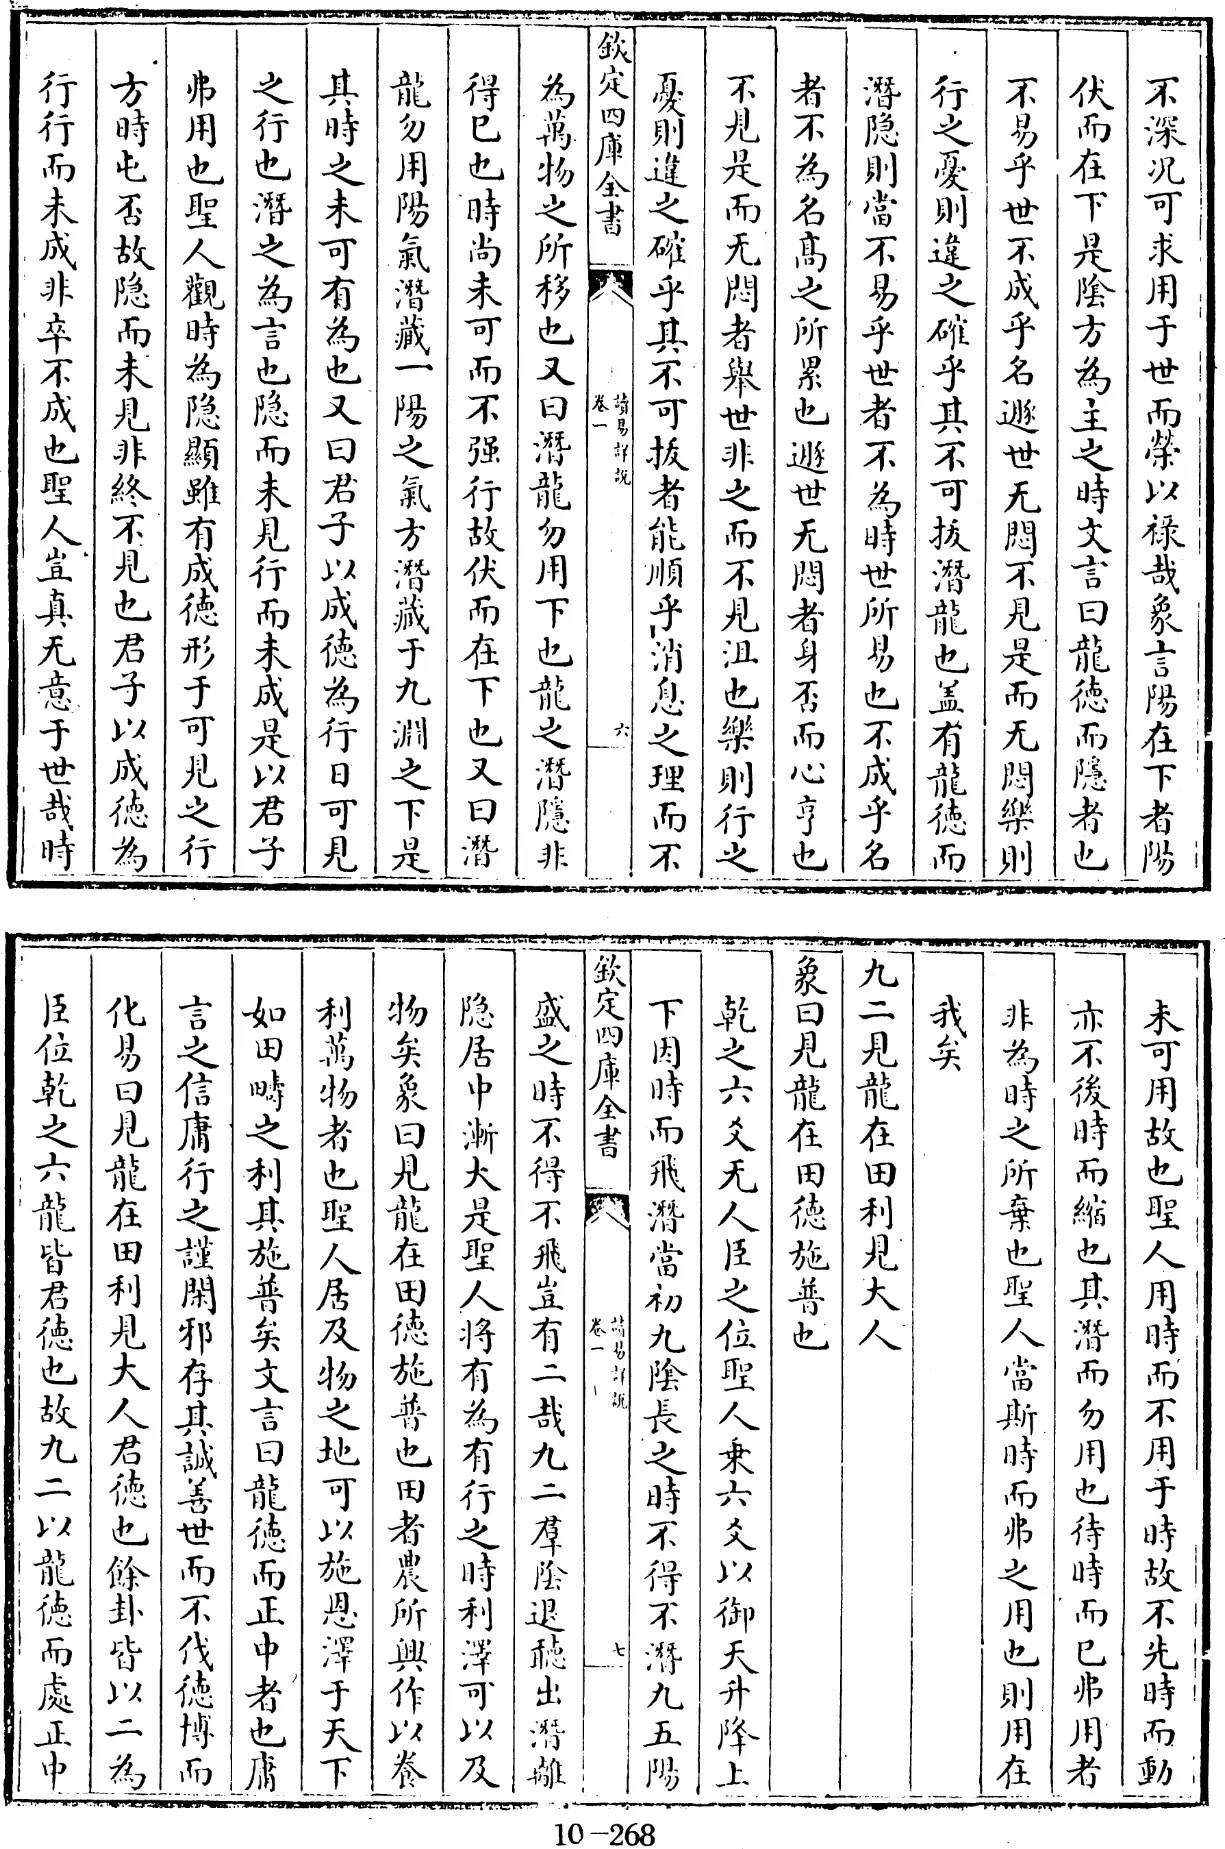 不深况可求用于世而榮以禄哉象言陽在下者陽
伏而在下是陰方為主之時文言曰龍徳而隱者也
不易乎世不成乎名遯世无悶不見是而无悶樂則
行之憂則違之確乎其不可拔潛龍也盖有龍徳而
潛隐則當不易乎世者不為時世所易也不成乎名
者不為名髙之所累也遯世无悶者身否而心亨也
不見是而无悶者舉世非之而不見沮也樂則行之
憂則違之確乎其不可拔者能順乎消息之理而不
欽定四庫全書
讀易詳說
卷一
六
為萬物之所移也又曰潛龍勿用下也龍之潛隱非
得已也時尚未可而不强行故伏而在下也又曰潛
龍勿用陽氣潛藏一陽之氣方潛藏于九淵之下是
其時之未可有為也又曰君子以成徳為行日可見
之行也潛之為言也隐而未見行而未成是以君子
弗用也聖人觀時為隐顯雖有成徳形于可見之行
方時屯否故隐而未見非終不見也君子以成徳為
行行而未成非卒不成也聖人豈真无意于世哉時
未可用故也聖人用時而不用于時故不先時而動
亦不後時而縮也其潛而勿用也待時而已弗用者
非為時之所棄也聖人當斯時而弗之用也則用在
我矣
九二見龍在田利見大人
象曰見龍在田徳施普也
乾之六爻无人臣之位聖人乗六爻以御天升降上
下因時而飛潛當初九陰長之時不得不潛九五陽
欽定四庫全書
讀易詳說
卷一
七
盛之時不得不飛豈有二哉九二羣陰退聽出潛離
隐居中漸大是聖人将有為有行之時利澤可以及
物矣象曰見龍在田徳施普也田者農所興作以養
利萬物者也聖人居及物之地可以施恩澤于天下
如田疇之利其施普矣文言曰龍徳而正中者也庸
言之信庸行之謹閑邪存其誠善世而不伐徳博而
化易曰見龍在田利見大人君徳也餘卦皆以二為
臣位乾之六龍皆君徳也故九二以龍徳而處正中
10-268